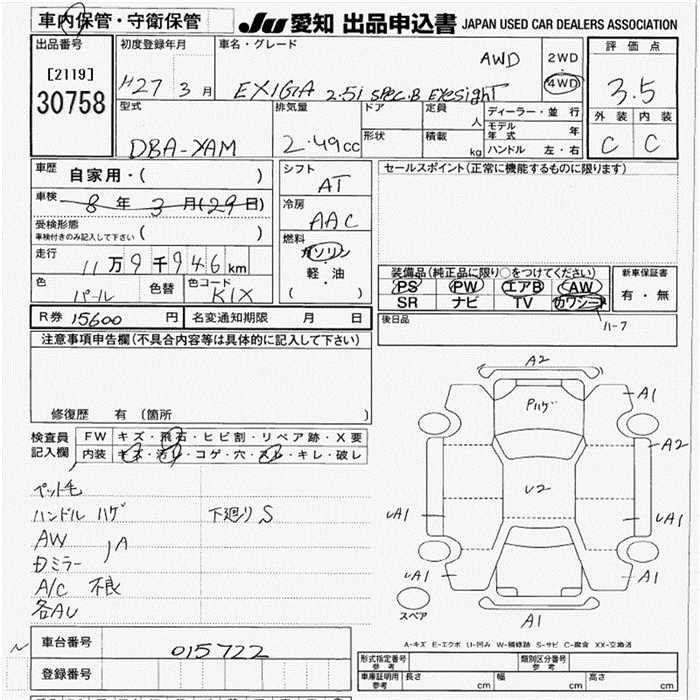 車内保管・守衛保管 JU 愛知 出品申込書 JAPAN USED CAR DEALERS ASSOCIATION
出品番号
[2119]
30758
初度登録年月
H27 3 月
車名・グレード
AWD
EXIGA 2.5i SPEC.B EyeSight
2WD
・
4WD
評価点
3.5
外装 内装
C C
型式
DBA-YAM
排気量
2.49cc
ドア
形状
定員
人
積載
kg
ディーラー・並行
モデル年式 年
ハンドル 左・右
車歴
自家用・( )
車検
8 年 3 月(29日)
受検形態
車検付きのみ記入して下さい ( )
走行
11万9千946km
色
パール
色替
色コード
K1X
シフト
AT
冷房
AAC
燃料
ガソリン
・
軽・油
( )
セールスポイント(正常に機能するものに限ります)
装備品(純正品に限り○をつけてください)
PS PW エアB AW
SR ナビ TV カワシート
ハーフ
新車保証書
有・無
R券 15600 円
名変通知期限 月 日
後日品
注意事項申告欄(不具合内容等は具体的に記入して下さい)
修復歴 有(箇所 )
検査員
記入欄
FW キズ・飛石・ヒビ割・リペア跡・X要
内装 キズ・汚レ・コゲ・穴・スレ・キレ・破レ
ペット毛
ハンドル ハゲ 下廻りS
AW
ドミラー )A
A/C 不良
各AU
A2
Pハゲ
A1
A2
U2
UA1
UA1
UA1
A1
スペア
A1
A-キズ E-エクボ U-凹み W-補修跡 S-サビ C-腐食 XX-交換済
車台番号
015722
登録番号
形式指定番号
参考
類別区分番号
参考
車庫証明用
参考
長さ cm
幅 cm
高さ cm